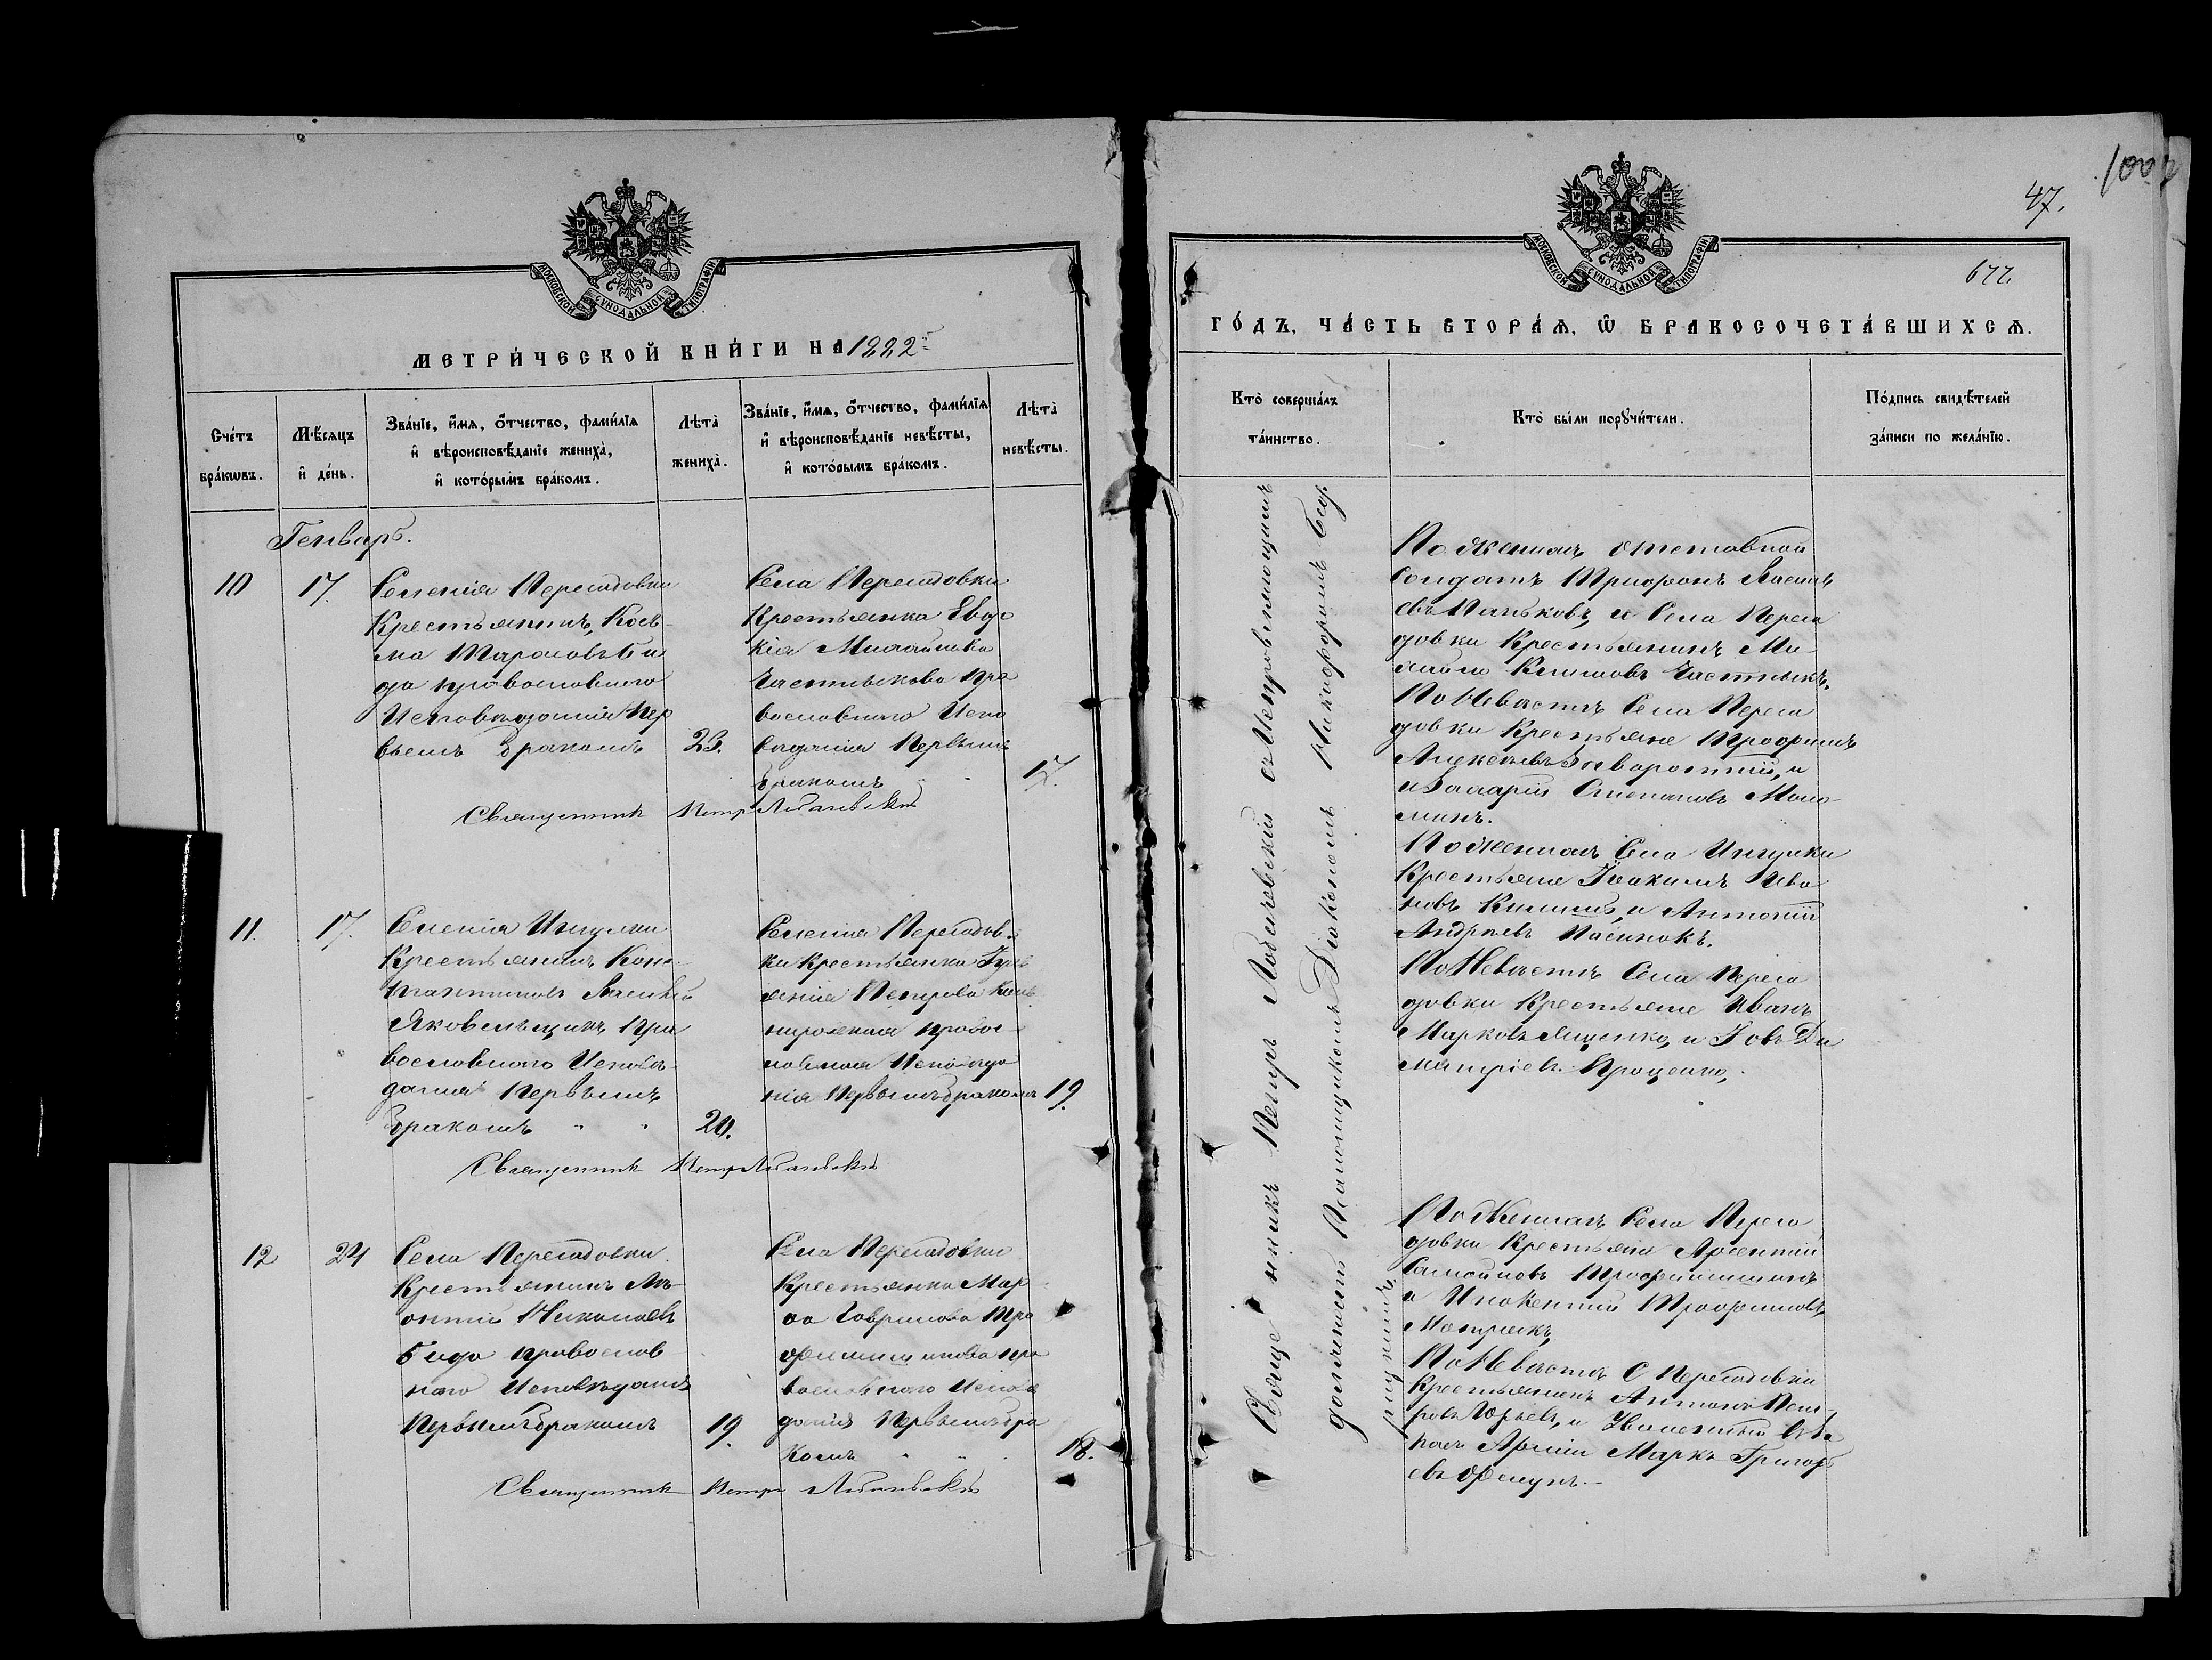 47.
677.
МОСКОВСКОЙ СѴНОДАЛЬНОЙ ТИПОГРАФІИ
МЕТРИ́ЧЕСКОЙ КНИ́ГИ НА 1882й
Сче́тъ бра́кѡвъ.
Мѣ́сяцъ и҆ де́нь.
Зва́нїе, и҆́мѧ, ѻ҆́тчество, фами́лїѧ
и҆ вѣроисповѣ́данїе женихà,
и҆ кото́рымъ бра́комъ.
Лѣ́та
женихà.
Зва́нїе, и҆́мѧ, ѻ҆́тчество, фами́лїѧ
и҆ вѣроисповѣ́данїе невѣ́сты,
и҆ кото́рымъ бра́комъ.
Лѣ́та
невѣ́сты.
Генварь.
10
17.
Селенія Пересадовки
Крестьянинъ, Кось-
ма Тарасовъ Би
да православнаго
Исповѣданія Пер
вымъ бракомъ
23.
Села Пересадовки
Крестьянка Евдо
кія Михайлова
Частникова Пра
вославнаго Испо
вѣданія Первымъ
бракомъ
17.
Священникъ Петръ
11.
17.
Селенія Ингулки
Крестьянинъ Конс-
тантинъ Васильевъ
Яковельщикъ Пра
вославнаго Исповѣ
данія Первымъ
бракомъ " "
20.
Селенія Пересадов-
ки Крестьянка Іулі
анія Петрова
Правос-
лавнаго Исповѣда
нія Первымъ бракомъ
19.
Священникъ Петръ
12
24
Села Пересадовки
Крестьянинъ Ле-
онтій Николаевъ
Бида Православ
наго Исповѣданія
Первымъ бракомъ
19.
Села Пересадовки
Крестьянка Мар
ѳа Гаврилова Тро
фимишинова Пра
вославнаго Исповѣ
данія Первымъ бра
комъ " "
18.
Священникъ Петръ
МОСКОВСКОЙ СѴНОДАЛЬНОЙ ТИПОГРАФІИ
ГО́ДЪ, ЧА́СТЬ ВТОРА́Ѧ, Ѡ҆ БРАКОСОЧЕТА́ВШИХСѦ.
Кто̀ соверша́лъ
та́инство.
Кто̀ бы́ли порꙋчи́тели.
По́дпись свидѣ́телей
за́писи по жела́нїю.
Священникъ Петръ съ Исправляющимъ
должность Псаломщикомъ Діакономъ Никифоромъ
По Женихѣ Отставной
Солдатъ Трифонъ Васильевъ
Паньковъ, и Села Переса
довки Крестьянинъ Ми-
хайло Климовъ Частникъ.
По Невѣстѣ Села Переса
довки Крестьяне Трофимъ
Алексѣевъ Заворотній, и
Степановъ
По Женихѣ Села Ингулки
Крестьяне Іоакимъ Ива
новъ и Антоній
Андреевъ Пасинокъ.
По Невѣстѣ Села Переса
довки Крестьяне Иванъ
Марковъ Ященко, и Іовъ Ди
митріевъ Проценко,
По Женихѣ Села Переса
довки Крестьяне Арсентій
Самойловъ Трофимишинъ
и Инокентій Трофимовъ
По Невѣстѣ С Пересадовки
Крестьянинъ Антонъ Пет-
ровъ Юрьевъ, и
Арміи Маркъ Григорь
евъ